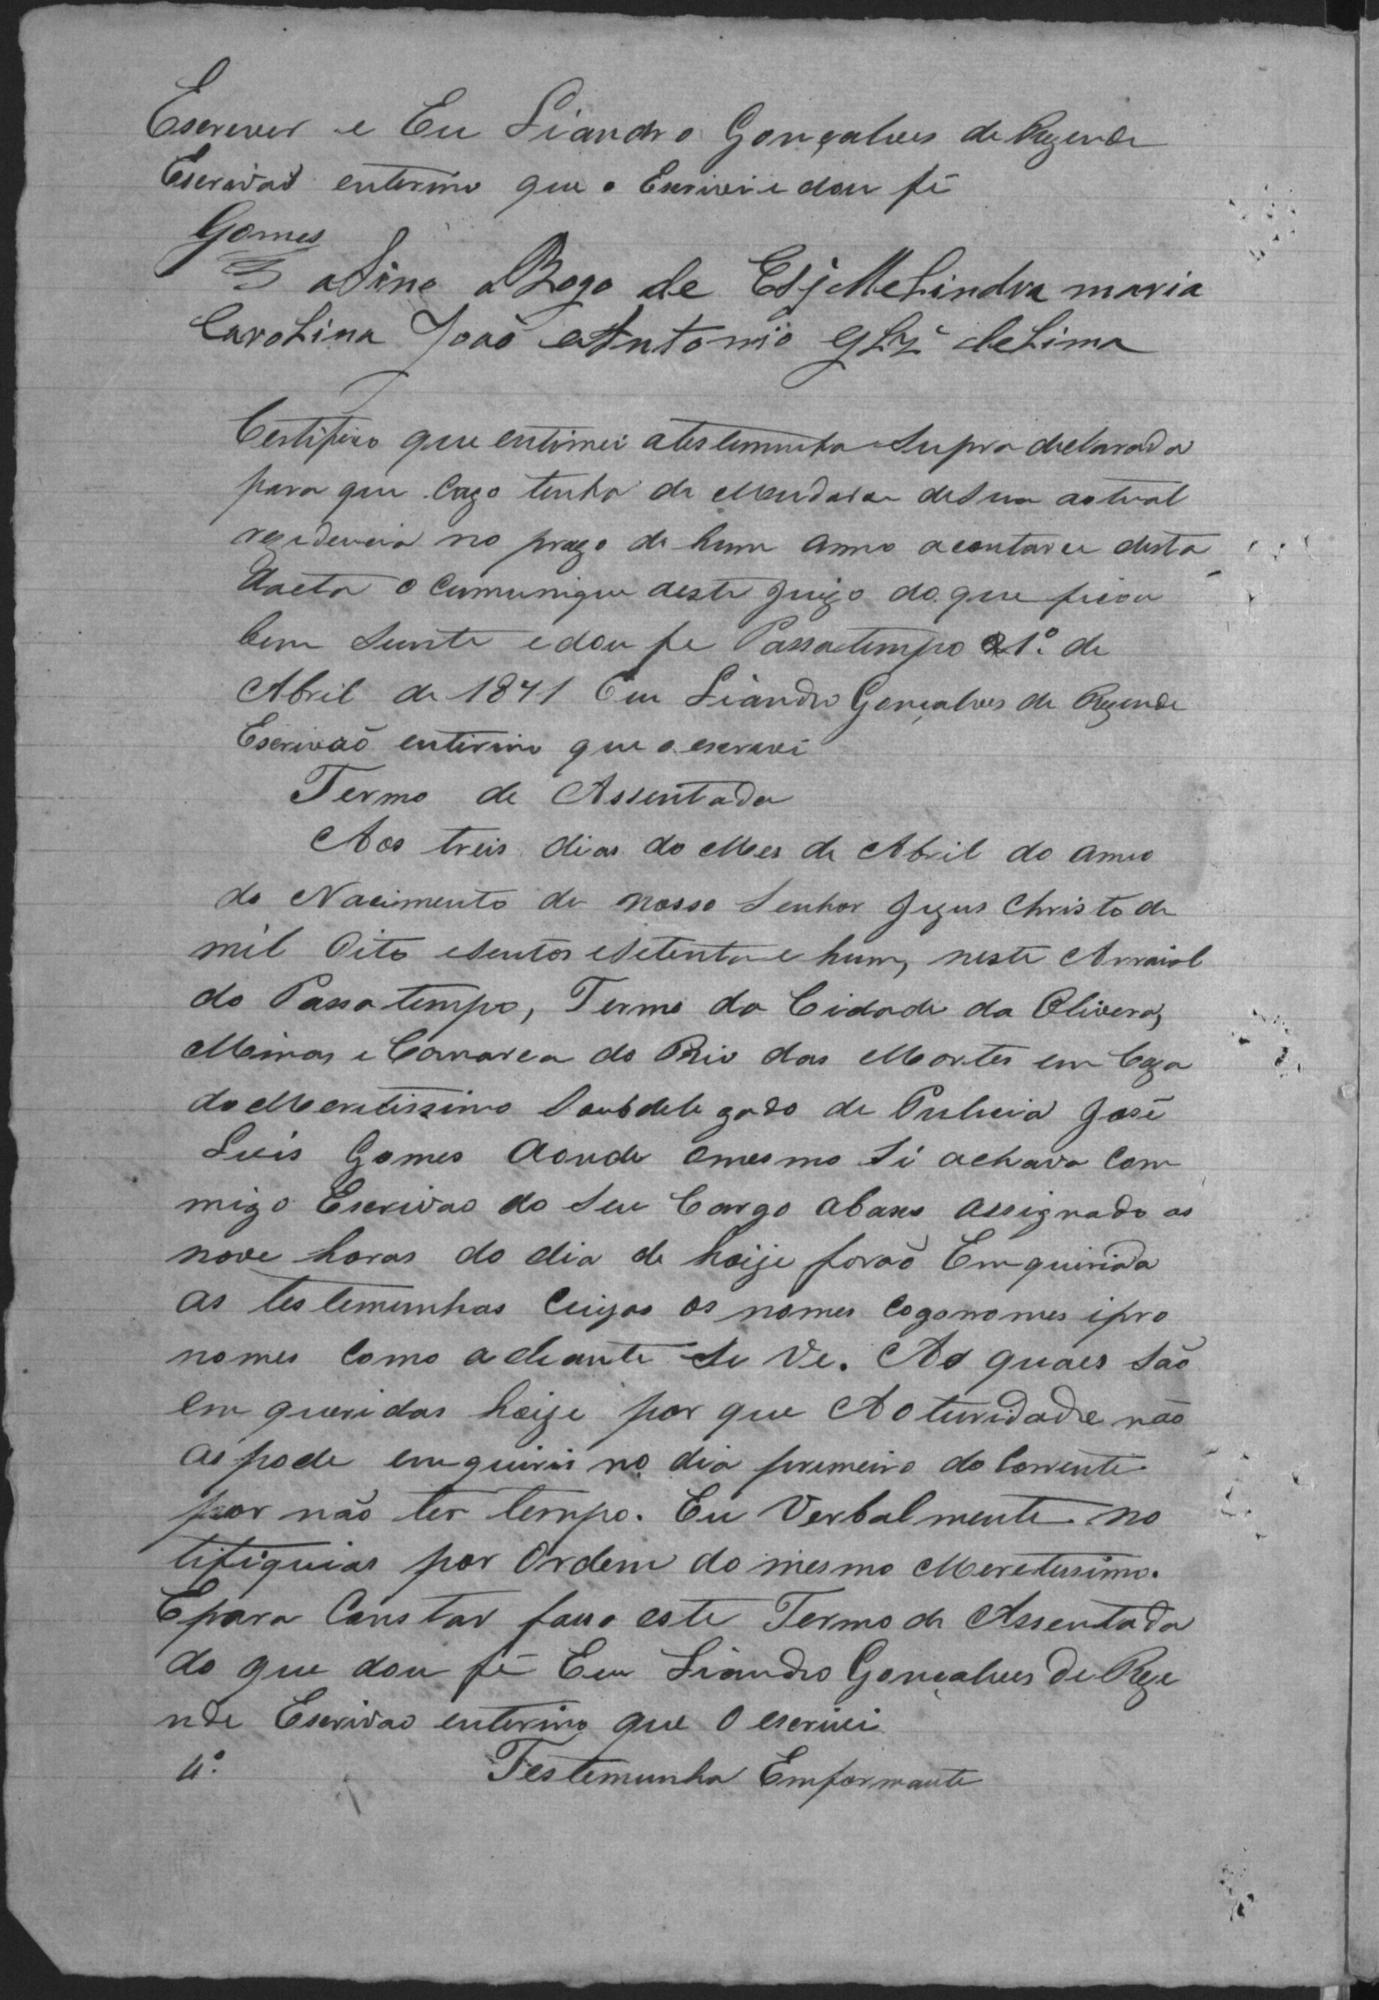 Escrever e Eu Liandro Gonçalves de Rezende
Escrivaõ enterino que o Escrivi e dou fé
Gomes
aSino aRogo de Esmelindra maria
CaroLina João Antonio Glz' deLima
Certifico que entimei atestemunha Supra declarada
para que Cazo tenha de Mendarar deSua actual
rezidencia no prazo de hum anno acontarce desta
dacta o Cumunique deste Juizo do que ficou
bem Siente e dou fe Passatempo 1º de
Abril de 1871 Eu Liandro Gonçalves de Rezende
Escrivaõ entirino que o escravi
Termo de Assentada
Aos treis dias do Mes de Abril do anno
do Nacimento de nosso Senhor Jezus Christo de
mil Oito esentos esetenta e hum, neste Arraial
do Passatempo, Termo da Cidade da Olivera,
Minas e Comarca do Rio das Mortes em Caza
do Meretissimo Soubdelegado de Pulicia José
Luis Gomes Aonde omesmo Si achava Com
migo Escrivão do Seu Cargo abaxo assignado as
nove horas do dia de hoije foraõ Emquirida
as testemunhas Cuijos os nomes Cogonomes ipro
nomes Como adeante Se Ve. As quaes São
emqueridas hoije por que Aoturidade não
as pode emquirir no dia premeiro do Corrente
por não ter tempo. Eu Verbalmente no
tifiquias por Ordem do mesmo Meretissimo.
Epara Constar fasso este Termo de Assentada
do que dou fé Eu Liandro Gonçalves de Reze
nde Escrivão enterino que O escrivi
4ª Testemunha Emformante